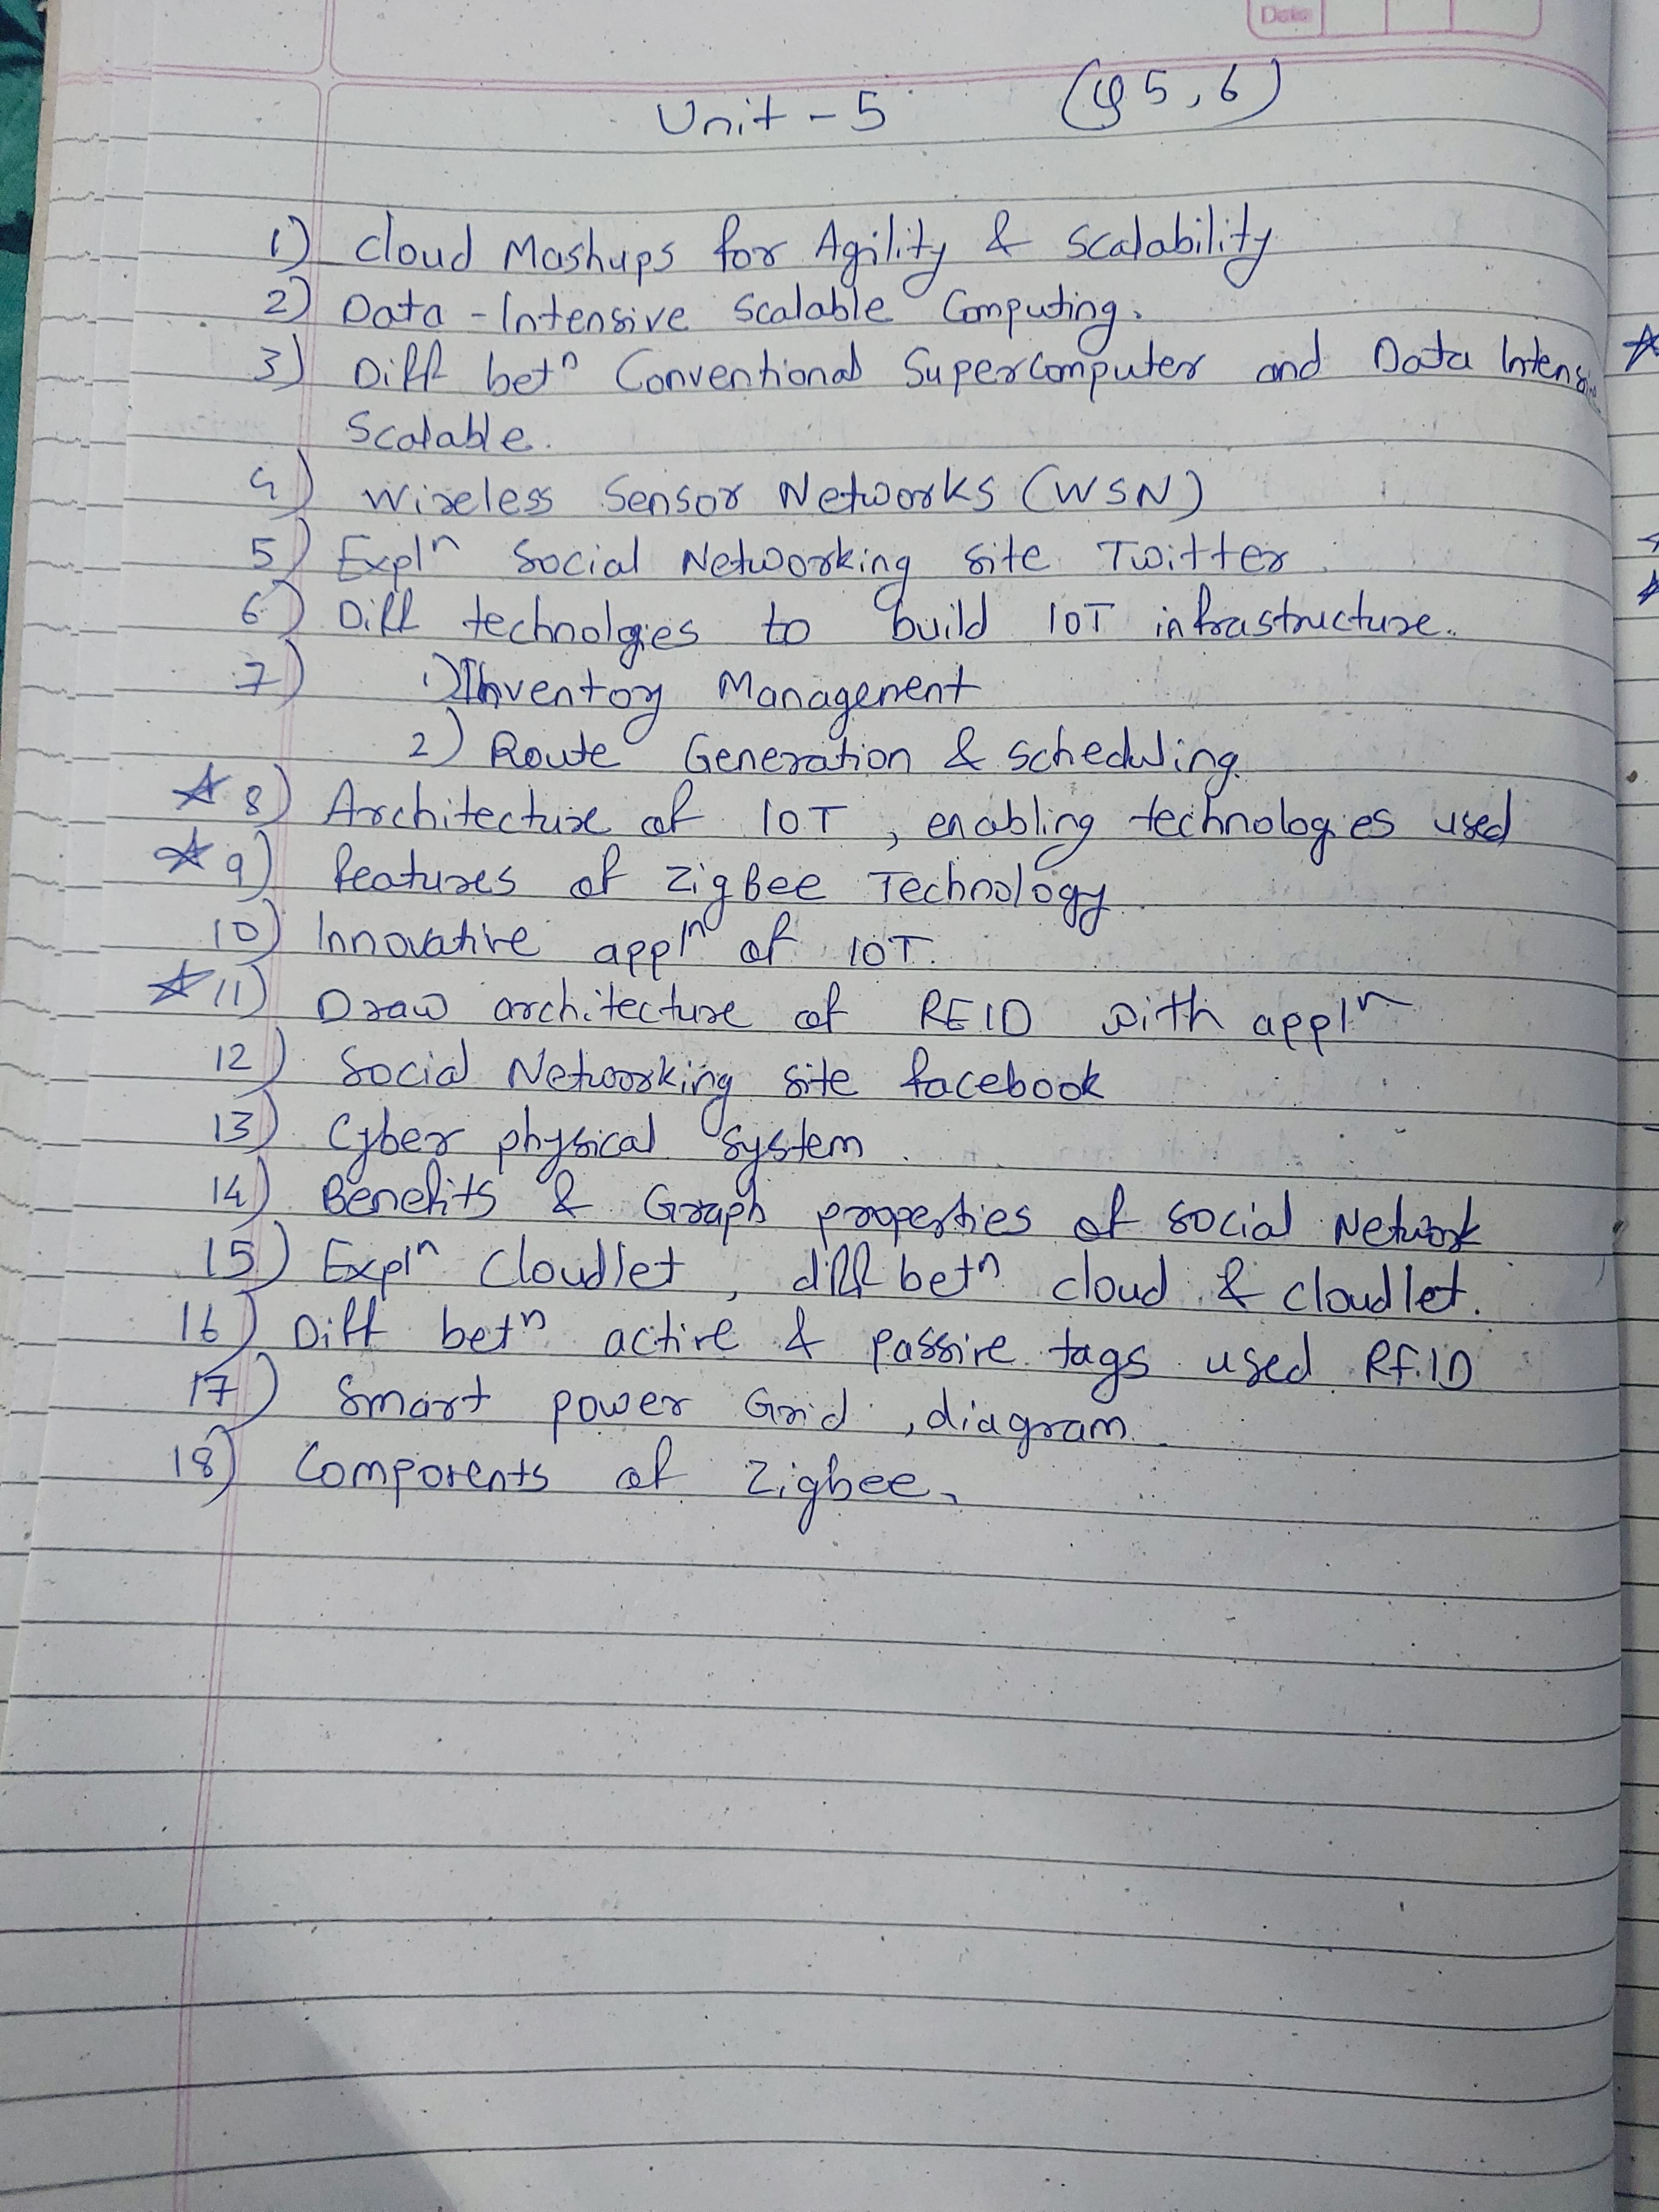 Date
Unit - 5 (Q 5, 6)
1) Cloud Mashups for Agility & Scalability
2) Data - Intensive Scalable Computing.
3) Diff betⁿ Conventional Supercomputer and Data Intensive
Scalable.
4) Wireless Sensor Networks (WSN)
5) Explⁿ Social Networking site Twitter.
6) Diff technologies to build IOT infrastructure.
7) 1) Inventory Management
2) Route Generation & Scheduling.
☆ 8) Architecture of IOT, enabling technologies used
☆ 9) features of ZigBee Technology.
10) Innovative applⁿ of IOT.
☆ 11) Draw architecture of RFID with applⁿ
12) Social Networking site facebook
13) Cyber physical system.
14) Benefits & Graph properties of social Network
15) Explⁿ Cloudlet, diff betⁿ cloud & cloudlet.
16) Diff betⁿ active & passive tags used RFID
17) Smart power Grid, diagram.
18) Components of Zigbee.